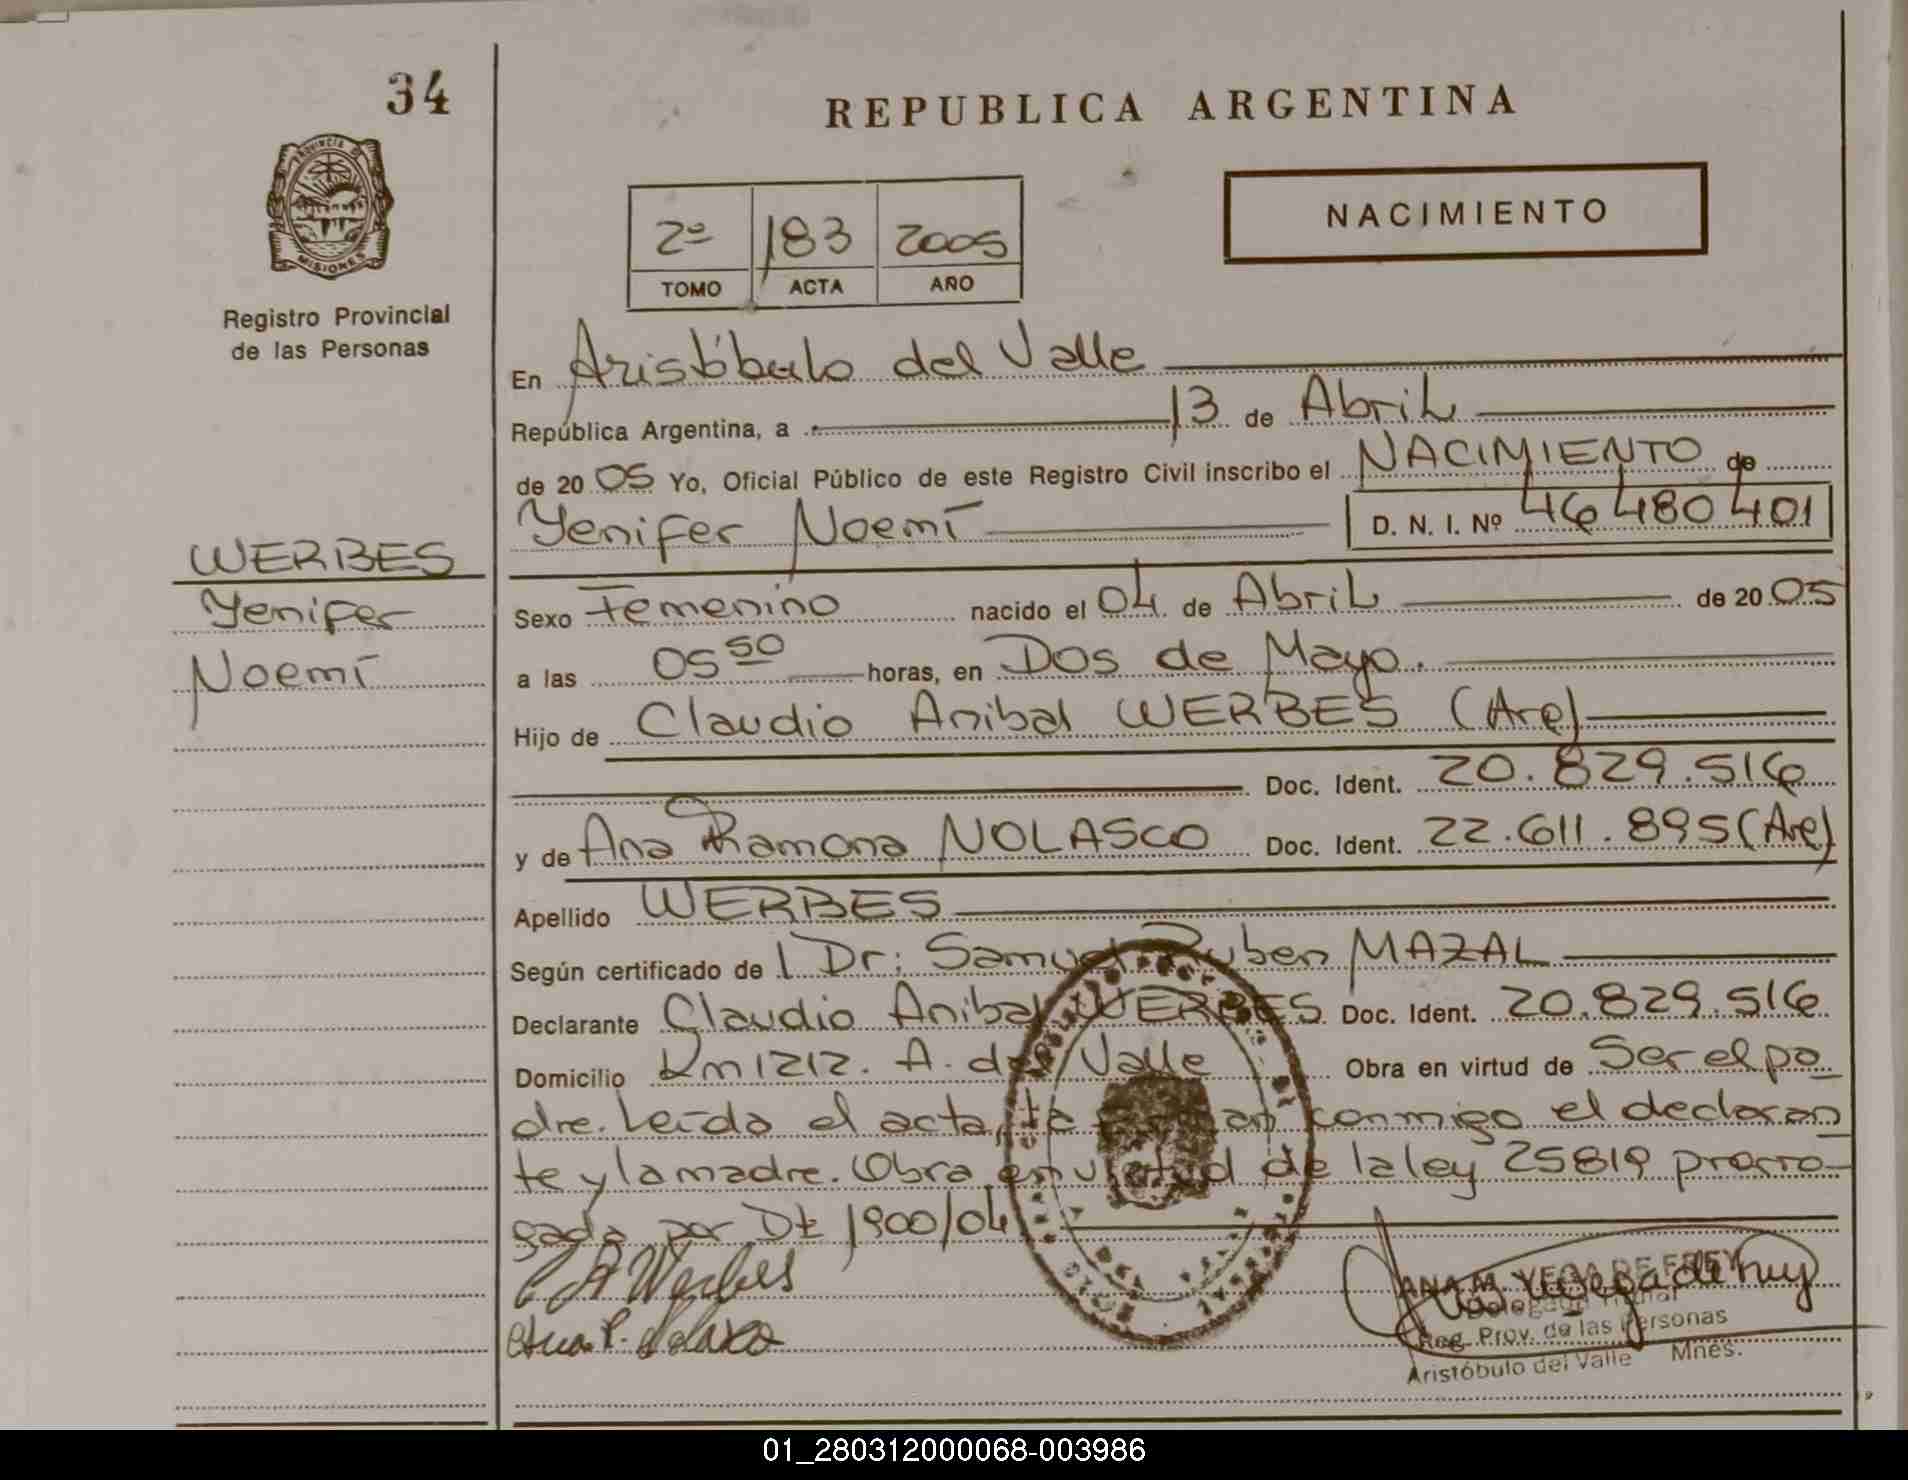 34
REPUBLICA ARGENTINA
PROVINCIA DE
MISIONES
Registro Provincial
de las Personas
NACIMIENTO
2º 183 2005
TOMO ACTA AÑO
En Aristóbulo del Valle
República Argentina, a 13 de Abril
de 2005 Yo, Oficial Público de este Registro Civil inscribo el NACIMIENTO de
Yenifer Noemí D. N. I. Nº 46480401
WERBES
Yenifer
Noemí
Sexo Femenino nacido el 04 de Abril de 2005
a las 05 50 horas, en Dos de Mayo.
Hijo de Claudio Anibal WERBES (Arg)
Doc. Ident. 20.829.516
y de Ana Ramona NOLASCO Doc. Ident. 22.611.895 (Arg)
Apellido WERBES
Según certificado de Dr: Samuel Ruben MAZAL
Declarante Claudio Anibal WERBES Doc. Ident. 20.829.516
Domicilio Km 1212. A. del Valle Obra en virtud de Ser el pa
dre. Leída el acta, la firman conmigo el declaran
te y la madre. Obra en virtud de la ley 25819 prorro-
gada por Dt 1900/04
C A Werbes
Ana R. Nolasco
ANA M. VEGA DE FREY
Delegada Titular
Reg. Prov. de las Personas
Aristóbulo del Valle Mnes.
01_280312000068-003986